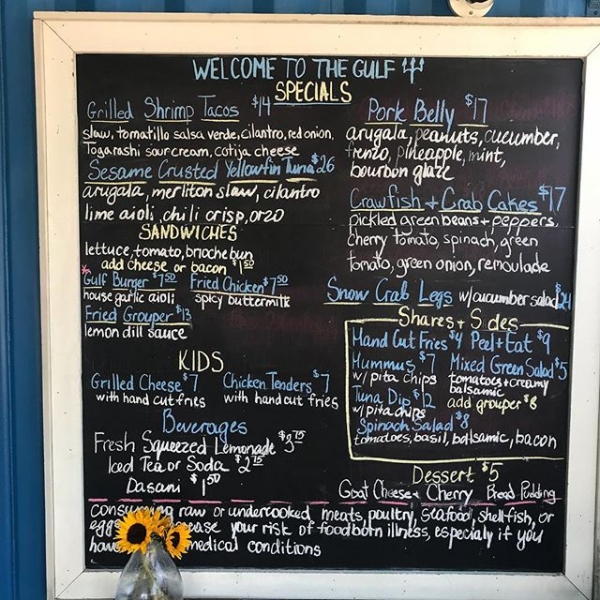 WELCOME TO THE GULF
SPECIALS
Grilled Shrimp Tacos $14
slaw, tomatillo salsa verde, cilantro, red onion,
Togarashi sour cream, cotija cheese
Sesame Crusted Yellowfin Tuna $26
arugala, merliton slaw, cilantro
lime aioli, chili crisp, orzo
SANDWICHES
lettuce, tomato, brioche bun
add cheese or bacon $1.50
*Gulf Burger $7.50 Fried Chicken $7.50
house garlic aioli spicy buttermilk
Fried Grouper $13
lemon dill sauce
KIDS
Grilled Cheese $7 Chicken Tenders $7
with hand cut fries with hand cut fries
Beverages
Fresh Squeezed Lemonade $3.75
Iced Tea or Soda $2.75
Dasani $1.50
Pork Belly $17
arugala, peanuts, cucumber,
frenzo, pineapple, mint,
bourbon glaze
Crawfish + Crab Cakes $17
pickled green beans + peppers,
cherry tomato, spinach, green
tomato, green onion, remoulade
Snow Crab Legs w/cucumber salad $24
Shares + Sides
Hand Cut Fries $4 Peel + Eat $9
Hummus $7 Mixed Green Salad $5
w/ pita chips tomatoes + creamy
balsamic
Tuna Dip $12 add grouper $8
w/ pita chips
Spinach Salad $8
tomatoes, basil, balsamic, bacon
Dessert $5
Goat Cheese + Cherry Bread Pudding
consuming raw or undercooked meats, poultry, seafood, shellfish, or
eggs your risk of foodborn illness, especialy if you
have medical conditions